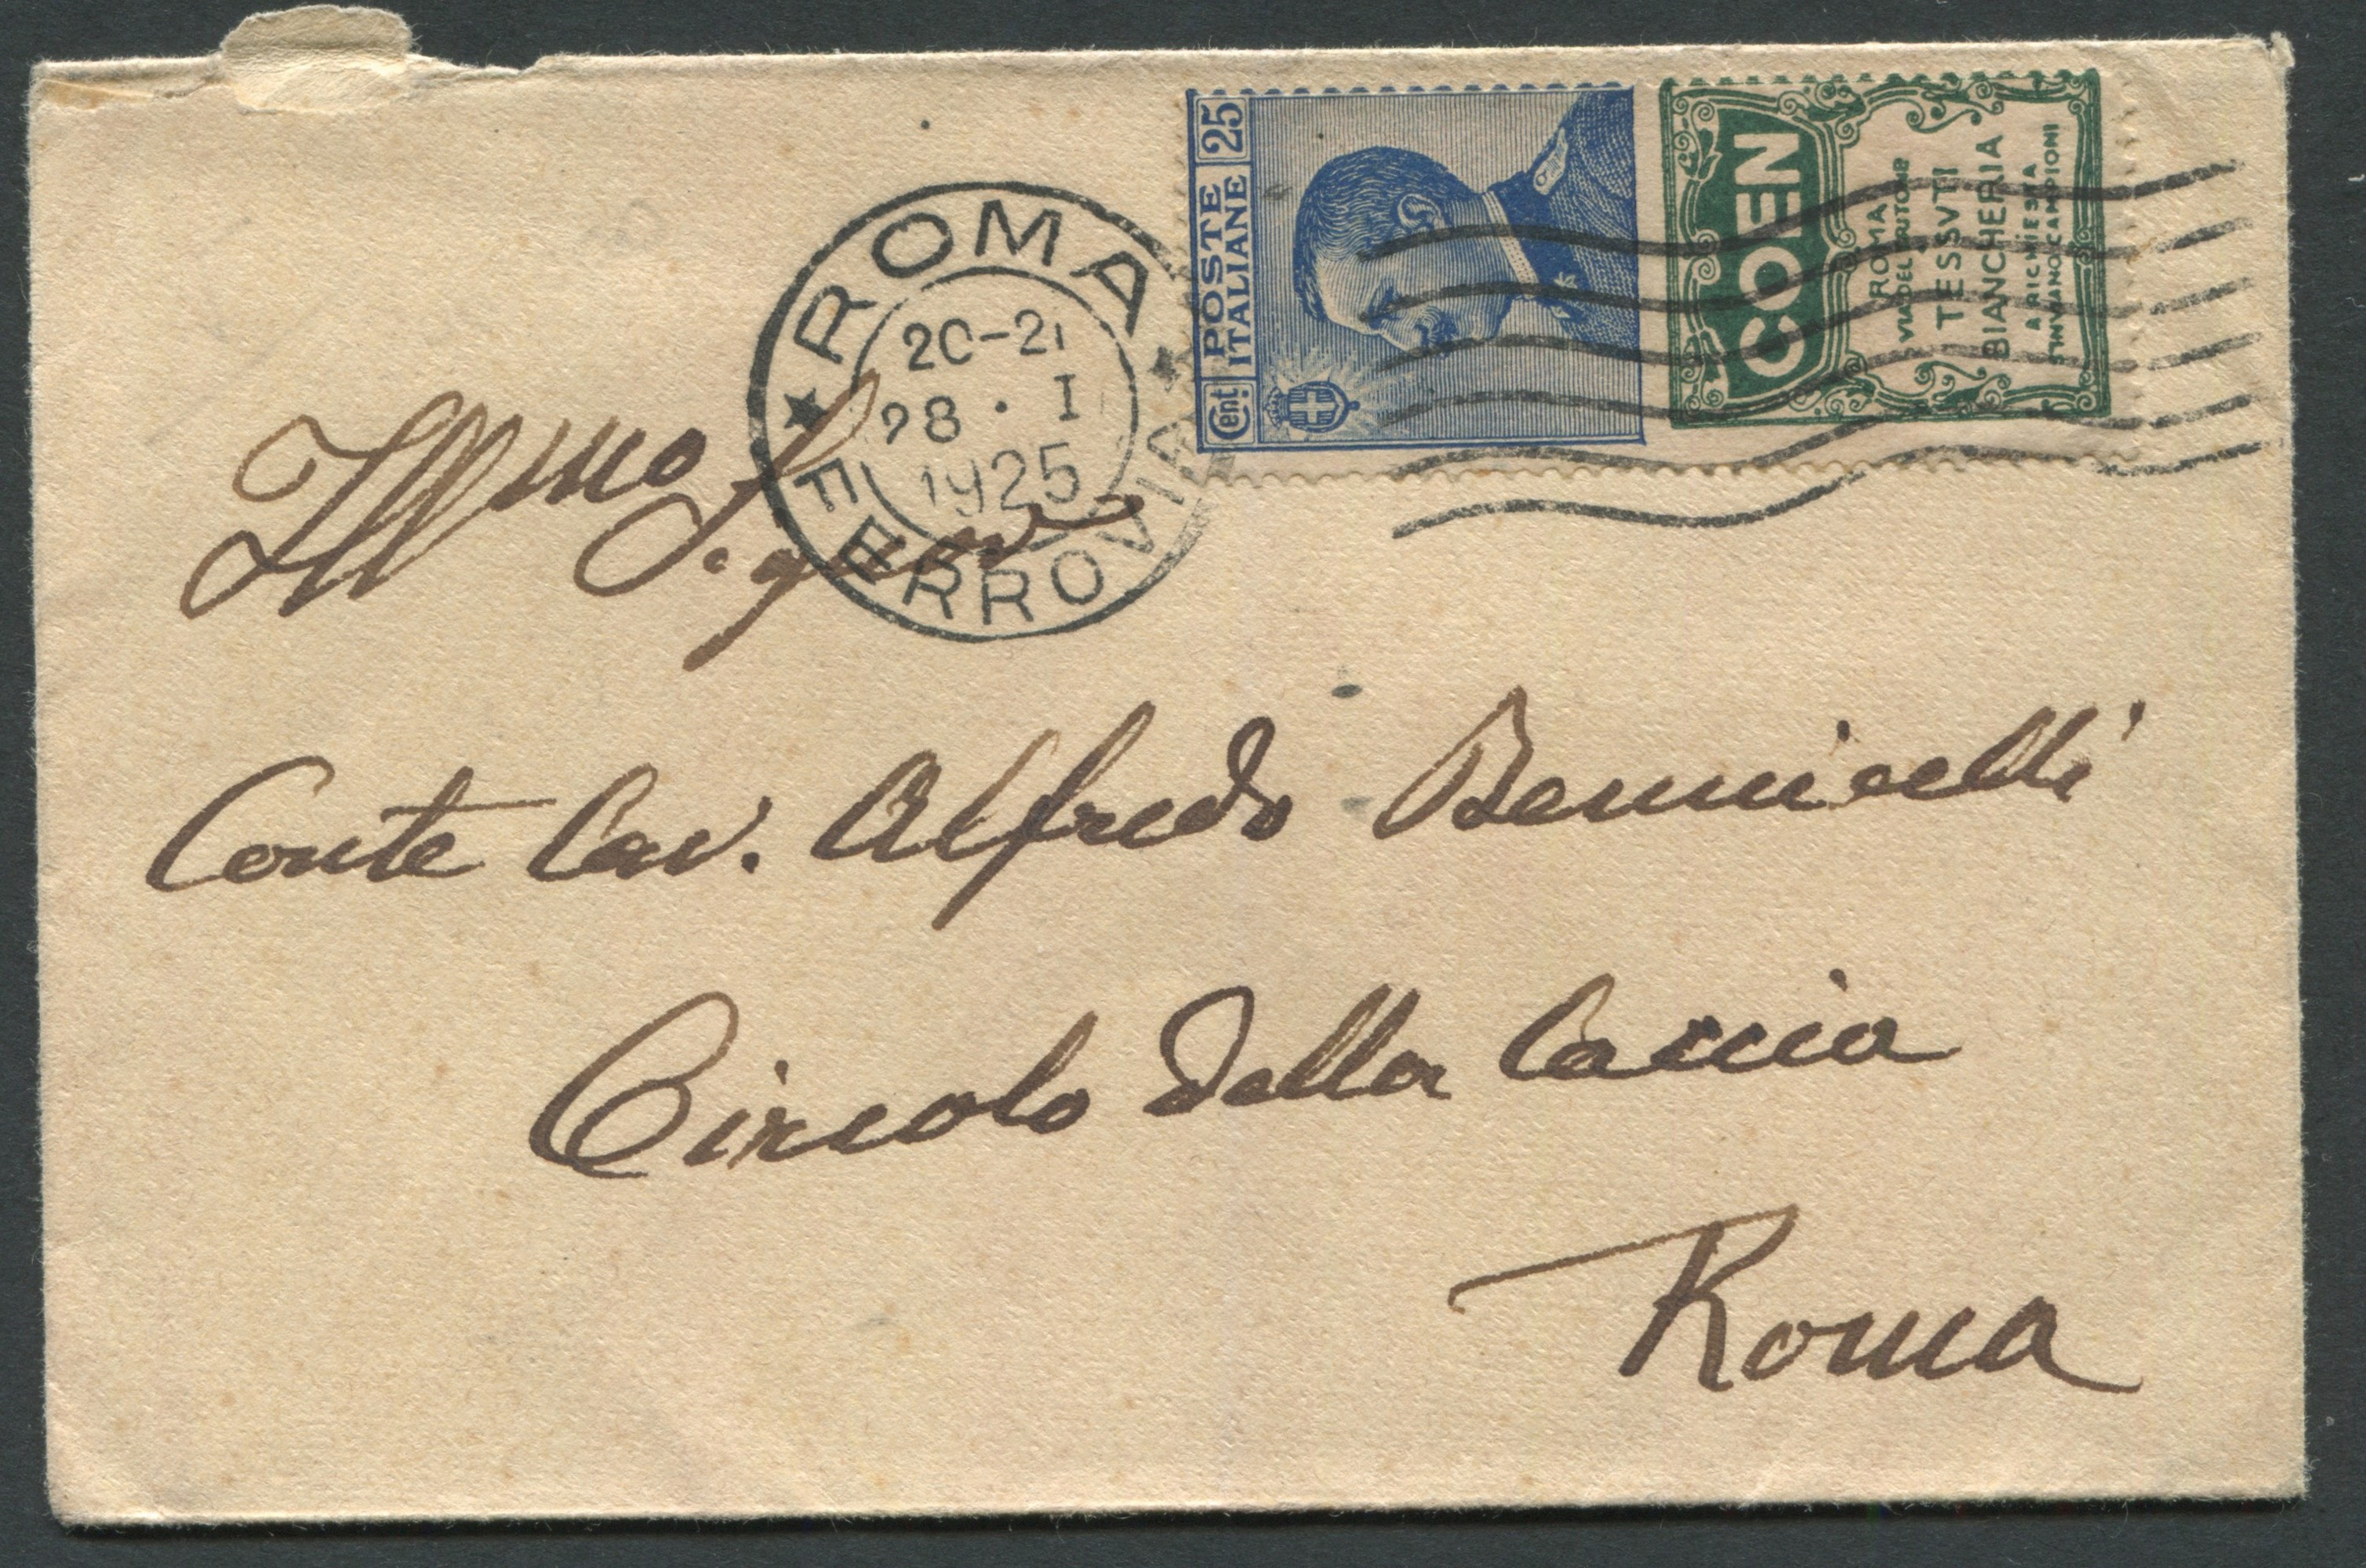 ROMA
FERROVIA
20-21
28 · I
1925
Cent 25
POSTE
ITALIANE
COEN
ROMA
VIA DEL TRITONE
TESSVTI
BIANCHERIA
A RICHIESTA
S'INVIANO CAMPIONI
Illmo Signor
Conte Cav. Alfredo Bennicelli
Circolo della Caccia
Roma